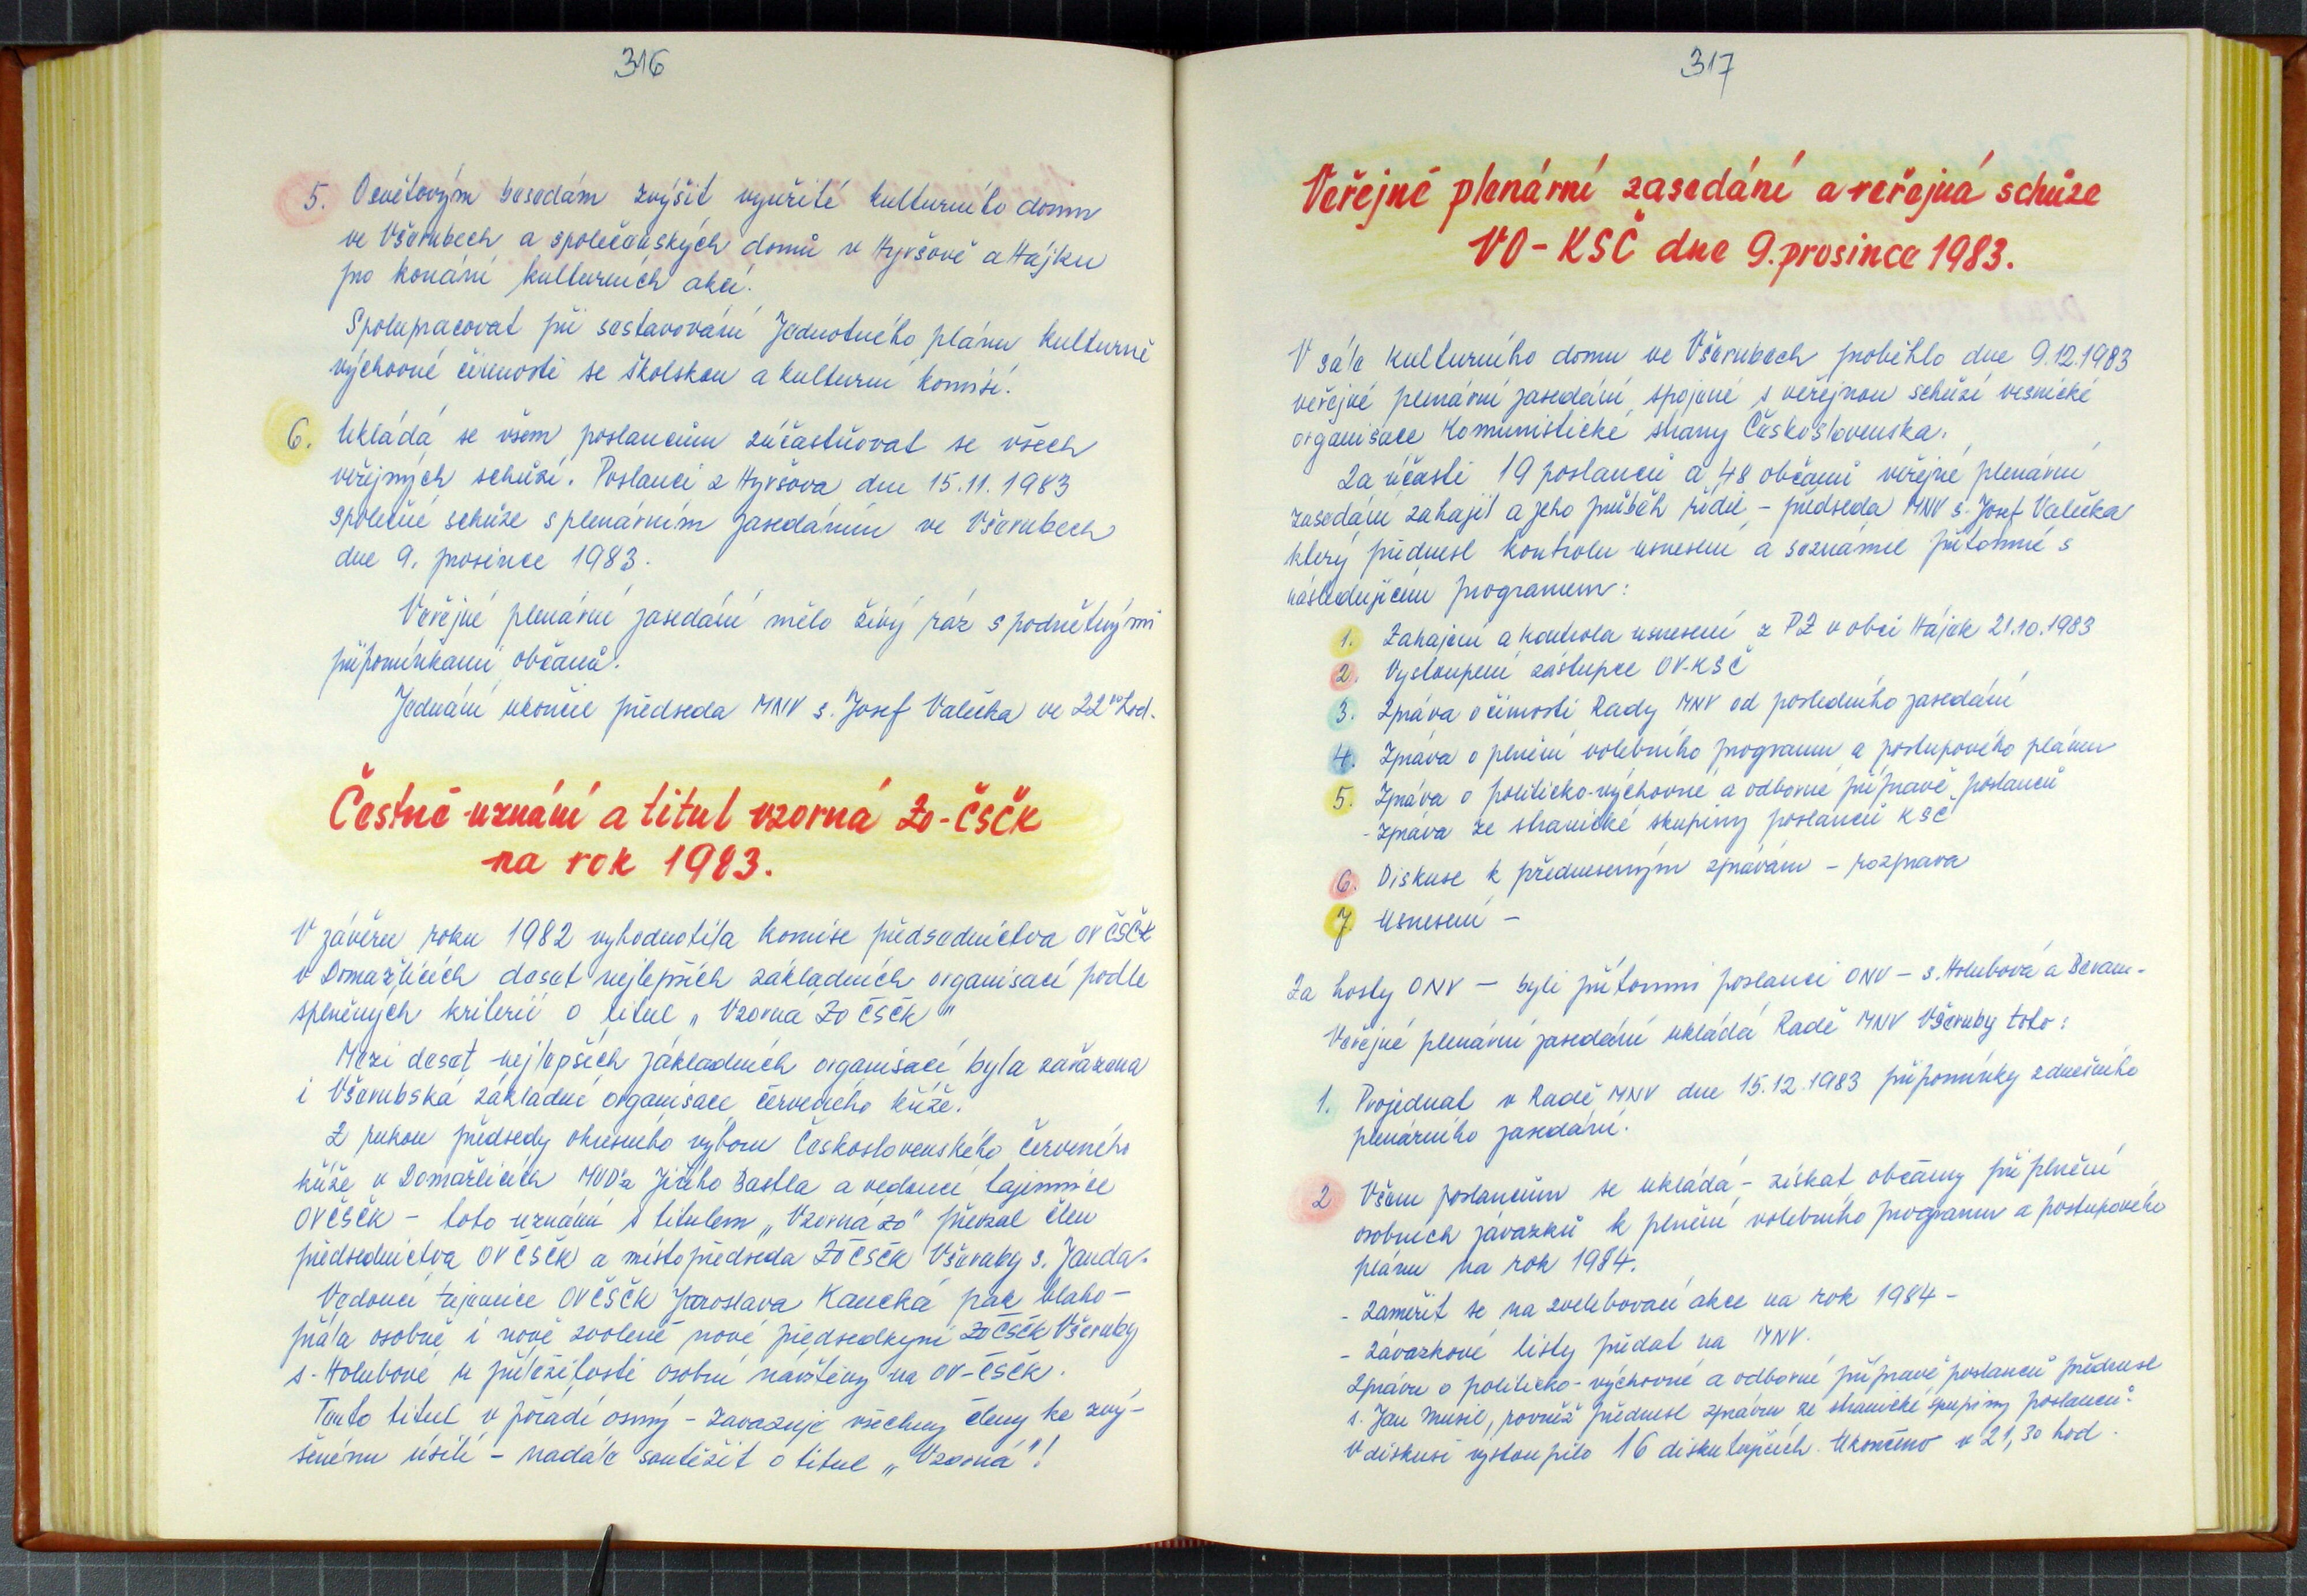 316
5. Osvětovým besedám zvýšit využití kulturního domu
ve Všerubech a společenských domů v Hyršově a Hájku
pro konání kulturních akcí.
Spolupracovat při sestavování Jednotného plánu kulturně
výchovné činnosti se školskou a kulturní komisí.
6. Ukládá se všem poslancům zúčastňovat se všech
veřejných schůzí. Poslanci z Hyršova dne 15.11.1983
společné schůze s plenárním zasedáním ve Všerubech
dne 9. prosince 1983.
Veřejné plenární zasedání mělo živý ráz s podnětnými
připomínkami občanů.
Jednání ukončil předseda MNV s. Josef Valečka ve 22 hod.
Čestné uznání a titul vzorná Zo-ČSČK
na rok 1983.
V závěru roku 1982 vyhodnotila komise předsednictva OV ČSČK
v Domažlicích deset nejlepších základních organisací podle
splněných kriterií o titul „Vzorná ZO ČSČK"
Mezi deset nejlepších základních organisací byla zařazena
i Všerubská základní organisace červeného kříže.
Z rukou předsedy okresního výboru Československého červeného
kříže v Domažlicích MUDra Jiřího Bastla a vedoucí tajemnice
OVČSČK - toto uznání s titulem „Vzorná zo" převzal člen
předsednictva OV ČSČK a místopředseda ZO ČSČK Všeruby s. Janda.
Vedoucí tajemnice OVČSČK Jaroslava Kaucká pak blaho-
přála osobně i nově zvolené nové předsedkyni ZO ČSČK Všeruby
s. Holubové u příležitosti osobní návštěvy na OV-ČSČK.
Tento titul v pořadí osmý - zavazuje všechny členy ke zvý-
šenému úsilí - nadále soutěžit o titul „Vzorná"!
317
Veřejné plenární zasedání a veřejná schůze
VO-KSČ dne 9. prosince 1983.
V sále kulturního domu ve Všerubech proběhlo dne 9.12.1983
veřejné plenární zasedání spojené s veřejnou schůzí vesnické
organisace Komunistické strany Československa.
Za účasti 19 poslanců a 48 občanů veřejné plenární
zasedání zahájil a jeho průběh řídil - předseda MNV s. Josef Valečka
který přednesl kontrolu usnesení a seznámil přítomné s
následujícím programem:
1. Zahájení a kontrola usnesení z PZ v obci Hájek 21.10.1983
2. Vystoupení zástupce OV-KSČ
3. Zpráva o činnosti Rady MNV od posledního zasedání
4. Zpráva o plnění volebního programu a postupového plánu
5. Zpráva o politicko-výchovné a odborné přípravě poslanců
- zpráva ze stranické skupiny poslanců KSČ
6. Diskuse k předneseným zprávám - rozprava
7. Usnesení -
Za hosty ONV - byli přítomni poslanci ONV - s. Holubová a Beran.
Veřejné plenární zasedání ukládá Radě MNV Všeruby toto:
1. Projednat v Radě MNV dne 15.12.1983 připomínky z dnešního
plenárního zasedání.
2 Všem poslancům se ukládá - získat občany při plnění
osobních závazků k plnění volebního programu a postupového
plánu na rok 1984.
- zaměřit se na zvelebovací akce na rok 1984 -
- závazkové listy předat na MNV.
Zprávu o politicko-výchovné a odborné přípravě poslanců přednesl
s. Jan Musil, rovněž přednesl zprávu ze stranické skupiny poslanců.
V diskusi vystoupilo 16 diskutujících. Ukončeno v 21,30 hod.